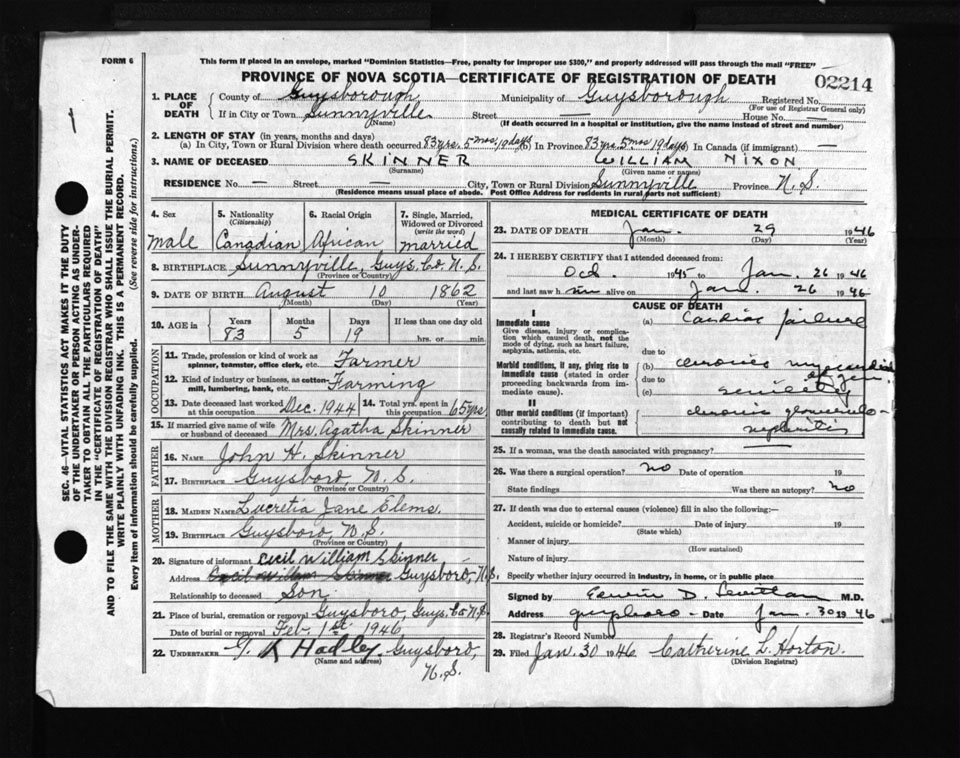 FORM 6
This form if placed in an envelope, marked "Dominion Statistics—Free, penalty for improper use $300," and properly addressed will pass through the mail "FREE"
PROVINCE OF NOVA SCOTIA—CERTIFICATE OF REGISTRATION OF DEATH
02214
1. PLACE OF DEATH
County of Guysborough Municipality of Guysborough Registered No.
(For use of Registrar General only)
If in City or Town Sunnyville Street — House No. —
(Name) (If death occurred in a hospital or institution, give the name instead of street and number)
2. LENGTH OF STAY (in years, months and days)
(a) In City, Town or Rural Division where death occurred 83 yrs. 5 mos. 19 days (b) In Province 83 yrs 5 mos 19 days In Canada (if immigrant) —
3. NAME OF DECEASED SKINNER WILLIAM NIXON
(Surname) (Given name or names)
RESIDENCE No. — Street — City, Town or Rural Division Sunnyville Province N.S.
(Residence means usual place of abode. Post Office Address for residents in rural parts not sufficient)
4. Sex
male
5. Nationality
(Citizenship)
Canadian
6. Racial Origin
African
7. Single, Married, Widowed or Divorced
(write the word)
married
8. BIRTHPLACE Sunnyville, Guys. Co. N.S.
(Province or Country)
9. DATE OF BIRTH August 10 1862
(Month) (Day) (Year)
10. AGE in
Years Months Days If less than one day old
83 5 19 hrs. or min.
OCCUPATION
11. Trade, profession or kind of work as spinner, teamster, office clerk, etc. Farmer
12. Kind of industry or business, as cotton-mill, lumbering, bank, etc. Farming
13. Date deceased last worked at this occupation Dec. 1944
14. Total yrs. spent in this occupation 65 yrs.
15. If married give name of wife or husband of deceased Mrs. Agatha Skinner
FATHER
16. NAME John H. Skinner
17. BIRTHPLACE Guysboro, N.S.
(Province or Country)
MOTHER
18. MAIDEN NAME Lucretia Jane Elms.
19. BIRTHPLACE Guysboro N.S.
(Province or Country)
20. Signature of informant Cecil William Skinner
Address Guysboro, N.S.
Relationship to deceased Son.
21. Place of burial, cremation or removal Guysboro, Guys. Co N.S.
Date of burial or removal Feb. 1st 1946
22. UNDERTAKER Hadley, Guysboro, N.S.
(Name and address)
MEDICAL CERTIFICATE OF DEATH
23. DATE OF DEATH Jan. 29 1946
(Month) (Day) (Year)
24. I HEREBY CERTIFY that I attended deceased from:
Oct. 1945 to Jan. 26 1946
and last saw h im alive on Jan. 26 1946
CAUSE OF DEATH
I
Immediate cause
Give disease, injury or complication which caused death, not the mode of dying, such as heart failure, asphyxia, asthenia, etc.
(a) Cardiac failure
due to
Morbid conditions, if any, giving rise to immediate cause (stated in order proceeding backwards from immediate cause).
(b) chronic
due to
(c) senility
II
Other morbid conditions (if important) contributing to death but not causally related to immediate cause.
chronic glomerulo-
nephritis
25. If a woman, was the death associated with pregnancy?
26. Was there a surgical operation? no Date of operation 19
State findings Was there an autopsy? no
27. If death was due to external causes (violence) fill in also the following:—
Accident, suicide or homicide? Date of injury 19
(State which)
Manner of injury
(How sustained)
Nature of injury
Specify whether injury occurred in industry, in home, or in public place
Signed by Edwin D. M.D.
Address guysboro - Date Jan. 30 1946
28. Registrar's Record Number
29. Filed Jan. 30 1946 Catherine L. Horton.
(Division Registrar)
SEC. 46—VITAL STATISTICS ACT MAKES IT THE DUTY
OF THE UNDERTAKER OR PERSON ACTING AS UNDER-
TAKER TO OBTAIN ALL THE PARTICULARS REQUIRED
IN THE "CERTIFICATE OF REGISTRATION OF DEATH"
AND TO FILE THE SAME WITH THE DIVISION REGISTRAR WHO SHALL ISSUE THE BURIAL PERMIT.
WRITE PLAINLY WITH UNFADING INK. THIS IS A PERMANENT RECORD.
Every item of information should be carefully supplied. (See reverse side for instructions.)